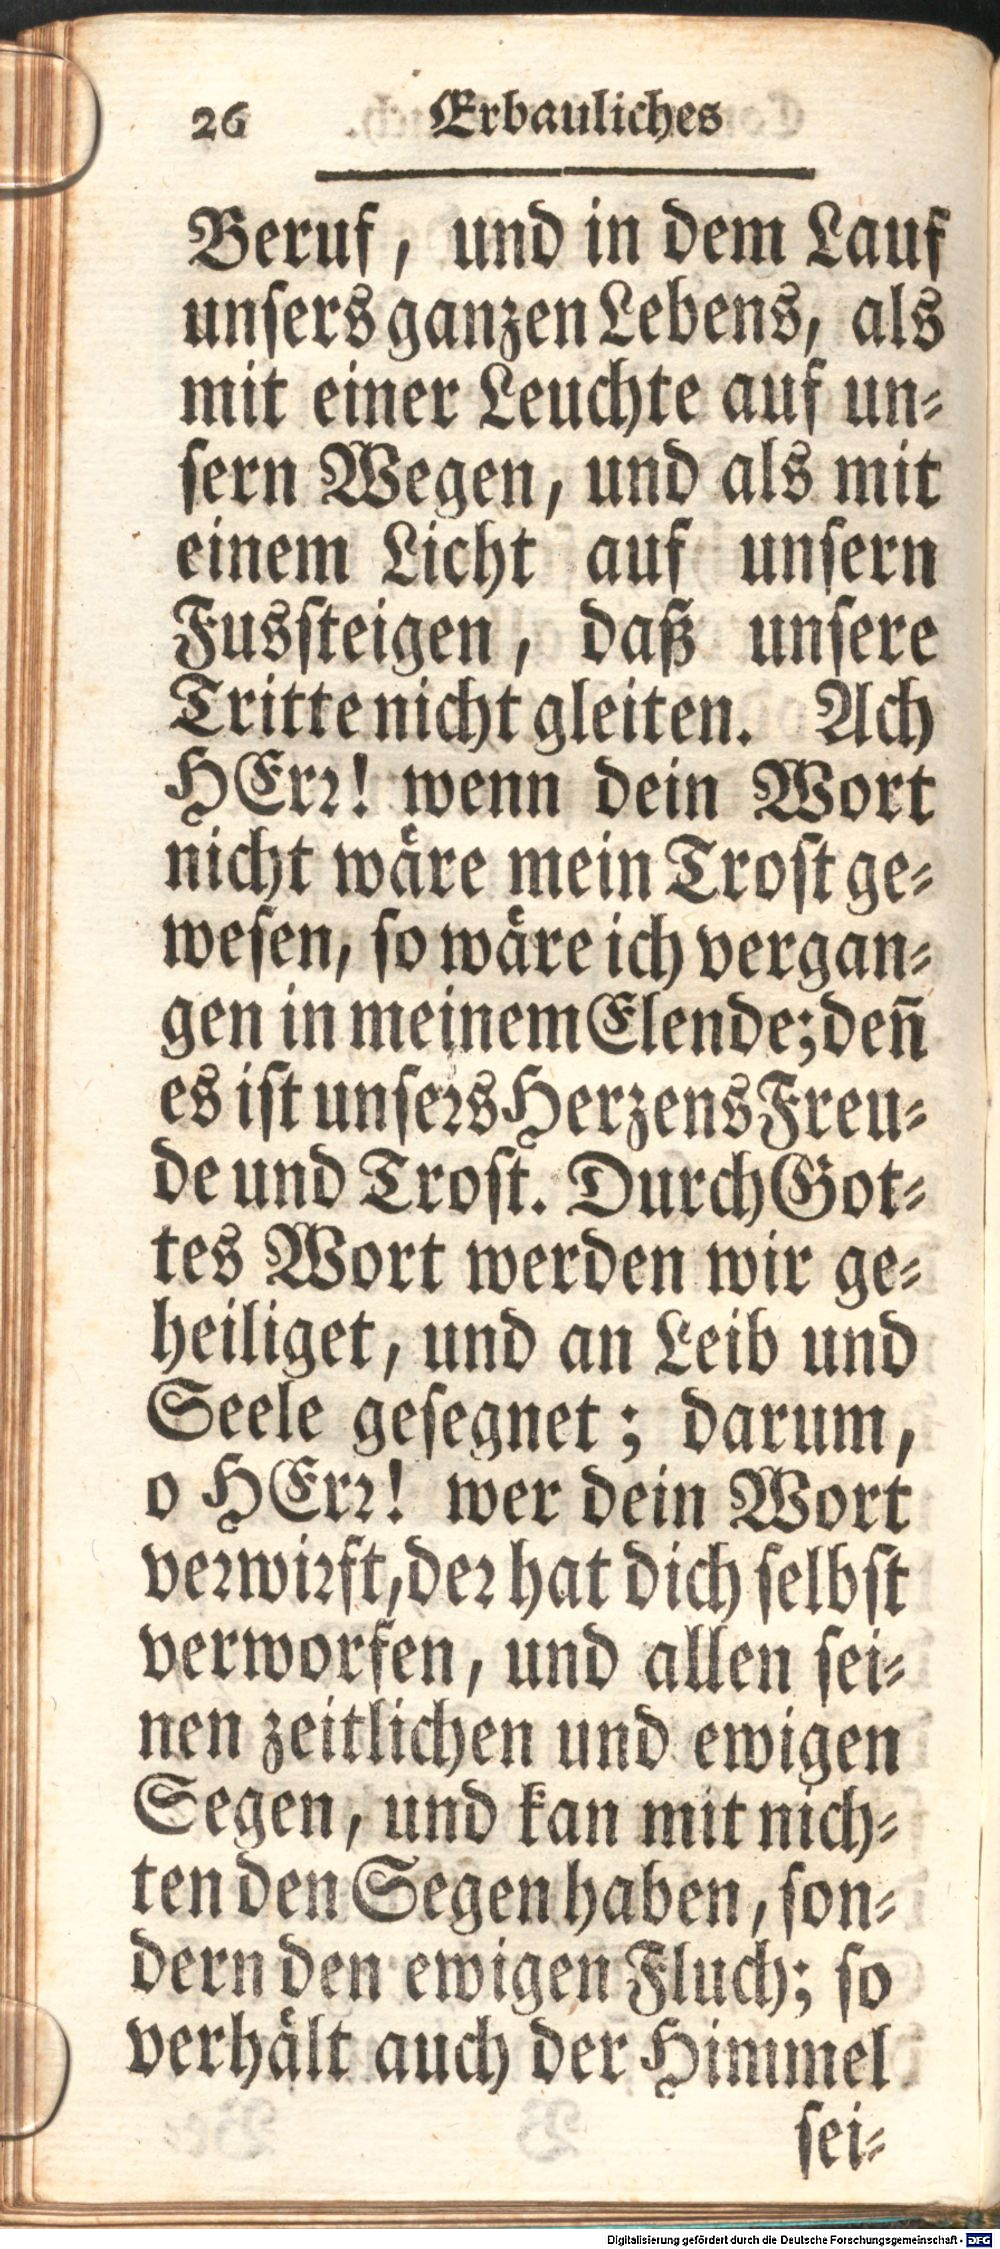 26 Erbauliches
Beruf, und in dem Lauf
unſers ganzen Lebens, als
mit einer Leuchte auf un⸗
ſern Wegen, und als mit
einem Licht auf unſern
Fusſteigen, daß unſere
Tritte nicht gleiten. Ach
HErꝛ! wenn dein Wort
nicht waͤre mein Troſt ge⸗
weſen, ſo waͤre ich vergan⸗
gen in meinem Elende; deñ
es iſt unſeꝛs Herzens Freu⸗
de und Troſt. Durch Got⸗
tes Wort werden wir ge⸗
heiliget, und an Leib und
Seele geſegnet; darum,
o HErꝛ! wer dein Wort
veꝛwiꝛft, deꝛ hat dich ſelbſt
verworfen, und allen ſei⸗
nen zeitlichen und ewigen
Segen, und kan mit nich⸗
ten den Segen haben, ſon⸗
dern den ewigen Fluch; ſo
verhaͤlt auch der Himmel
ſei⸗
Digitalisierung gefördert durch die Deutsche Forschungsgemeinschaft - DFG